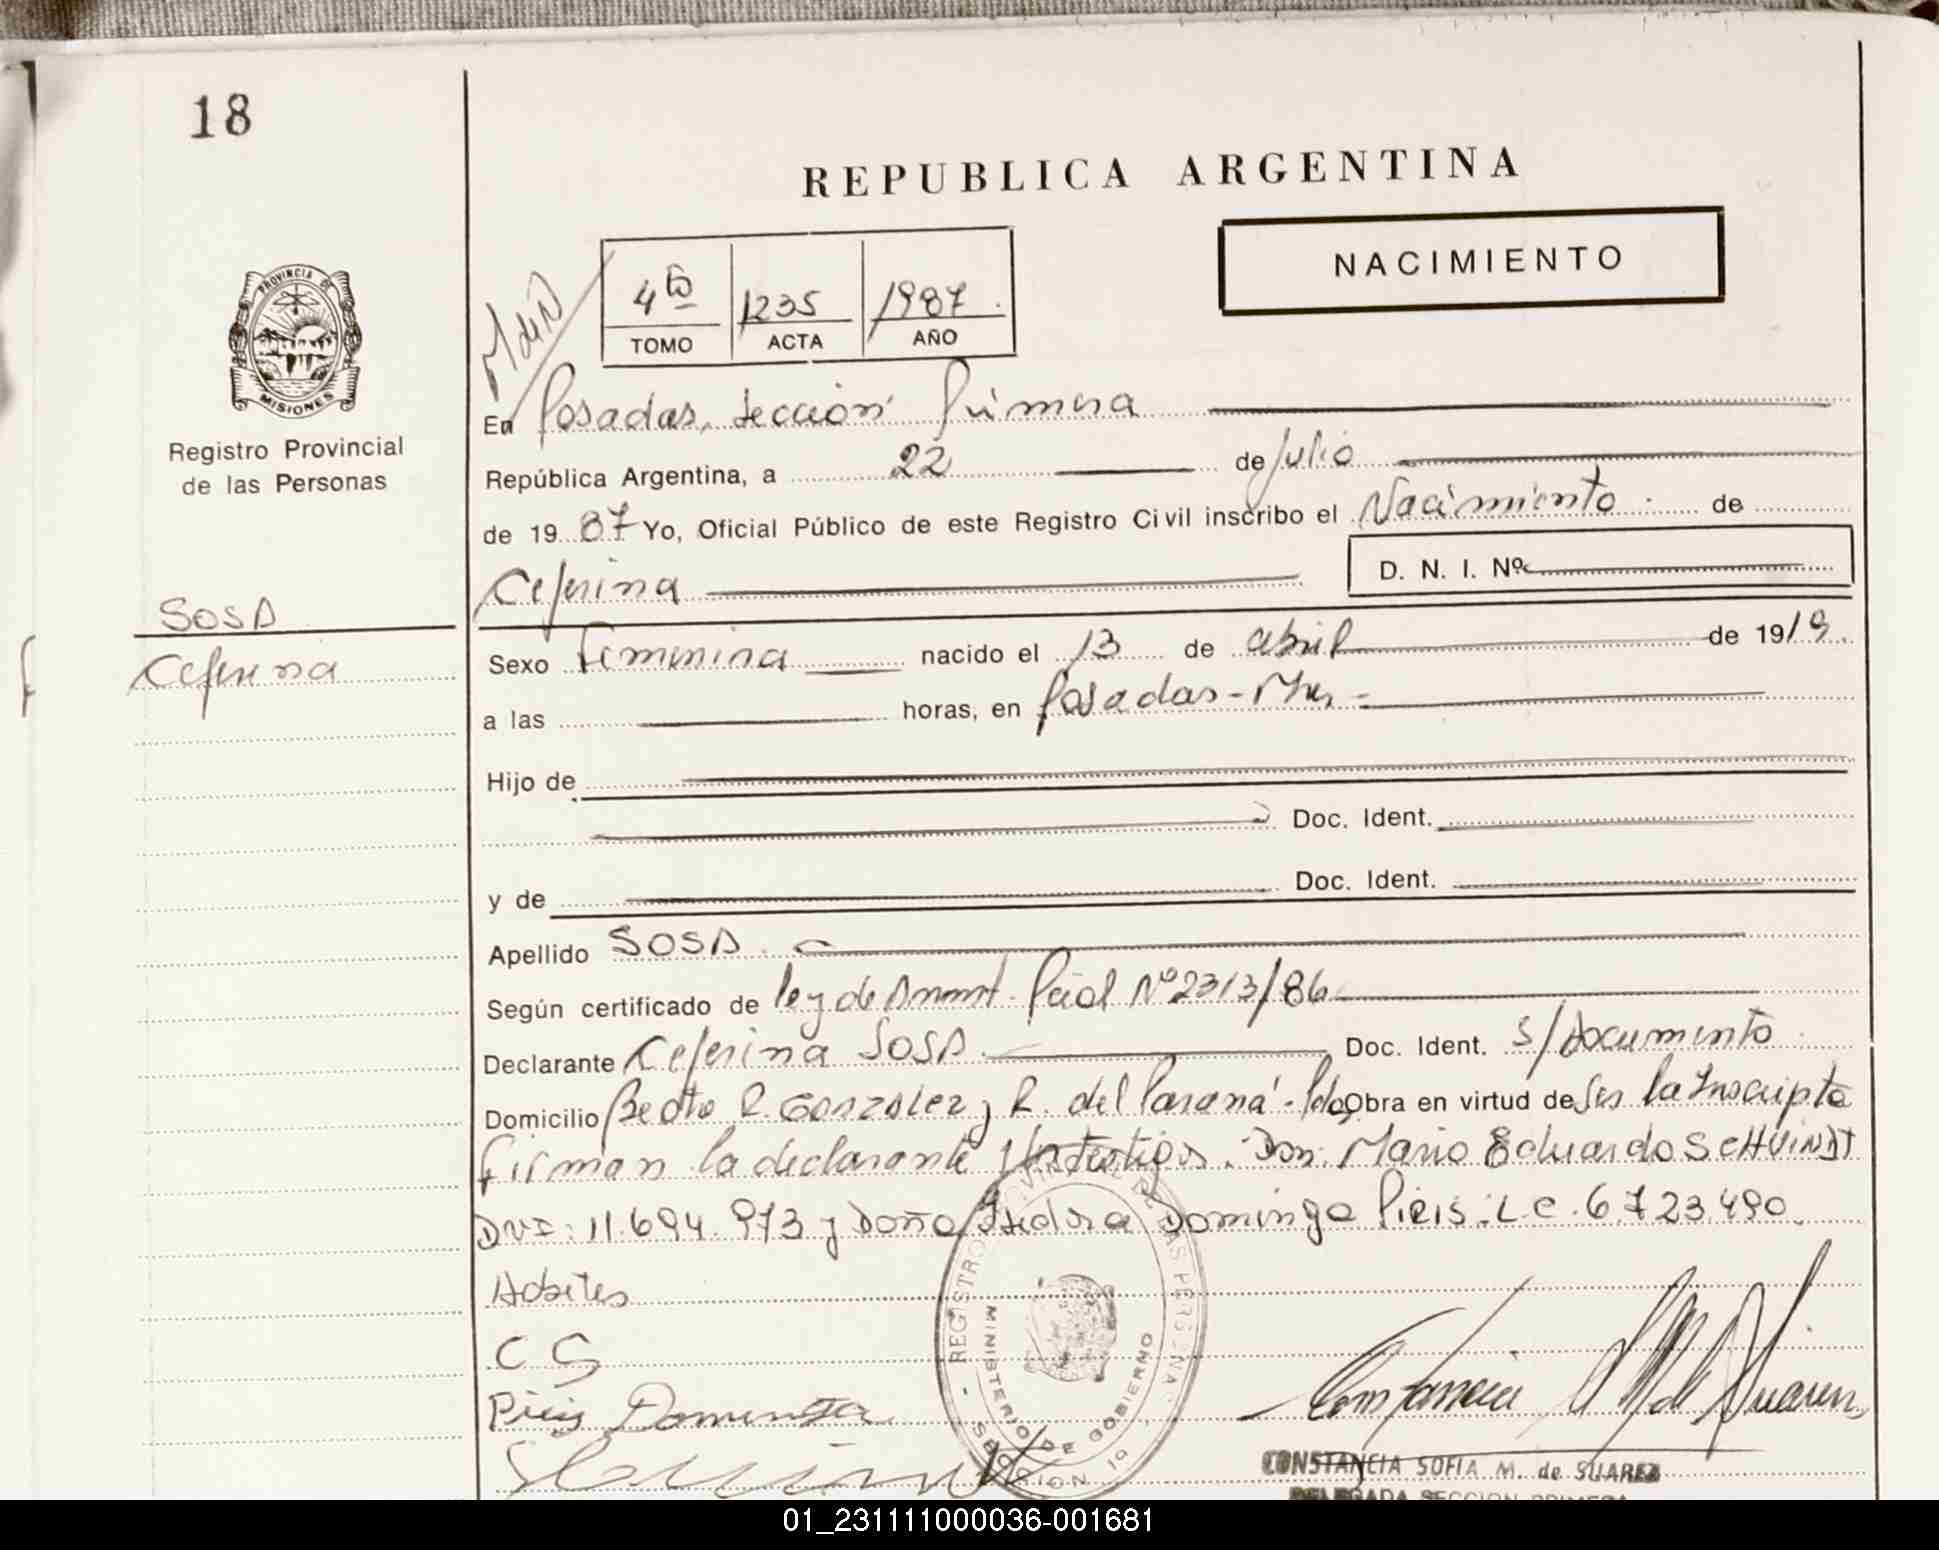 18
REPUBLICA ARGENTINA
NACIMIENTO
4to 1235 1987
TOMO ACTA AÑO
PROVINCIA DE
MISIONES
Registro Provincial
de las Personas
En Posadas, Sección Primera
República Argentina, a 22 de Julio
de 1987 Yo, Oficial Público de este Registro Civil inscribo el Nacimiento de
Ceferina D. N. I. Nº
SOSA
Ceferina
Sexo Femenina nacido el 13 de abril de 1919.
a las horas, en Posadas - Mnes -
Hijo de
Doc. Ident.
y de Doc. Ident.
Apellido SOSA
Según certificado de ley de Amnst. Pcial Nº 2313/86
Declarante Ceferina SOSA Doc. Ident. S/documento
Domicilio Bedto R. GONZALEZ y R. del Paraná - Pdas Obra en virtud de Ser la Inscripta
Firman la declarante y testigos. Don. Mario Eduardo SCHVINDT
DNI: 11.694.973 y Doña Isidora Dominga Pieis. L.C. 6.723.490.
C S
Pieis Dominga
REGISTRO PROVINCIAL DE LAS PERSONAS
MINISTERIO DE GOBIERNO
SECCION 1a
CONSTANCIA SOFIA M. de SUAREZ
DELEGADA SECCION PRIMERA
01_231111000036-001681